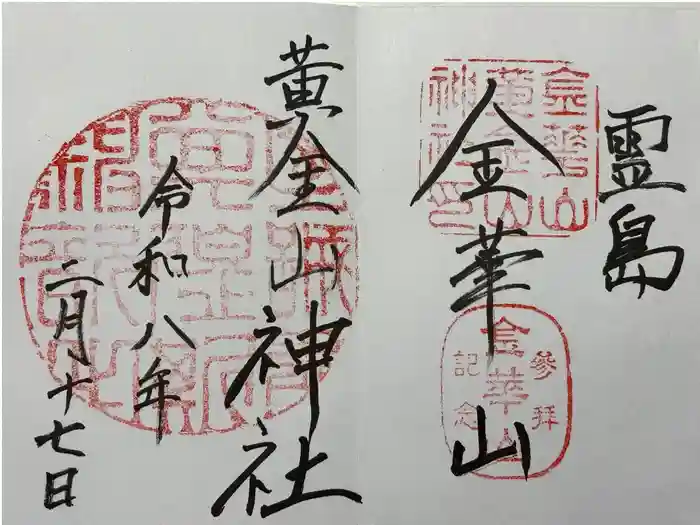 霊島
金華山
金華山
黄金山
神社印
参拝
金華山
記念
黄金山神社
令和八年
二月十七日